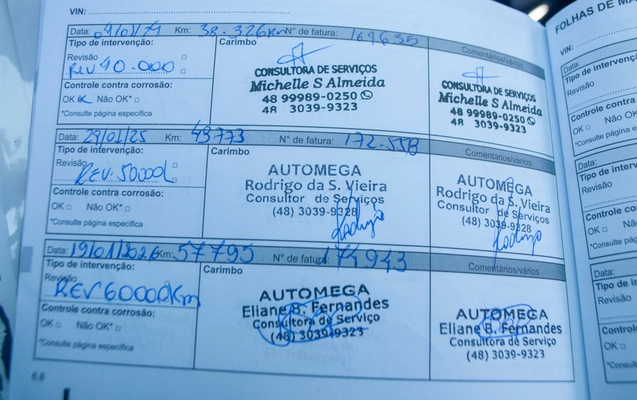 VIN:
FOLHAS DE MA
Data: 09/01/ Km: 38.326Km N° de fatura: 169635
Comentários/vários
Tipo de intervenção:
Carimbo
Revisão
REV 40.000
Controle contra corrosão:
OK Não OK*
*Consulte página específica
CONSULTORA DE SERVIÇOS
Michelle S Almeida
48 99989-0250
48 3039-9323
CONSULTORA DE SERVIÇOS
Michelle S Almeida
48 99989-0250
48 3039-9323
Data: /01/25 Km: 49773 N° de fatura: 172.558
Comentários/vários
Tipo de intervenção:
Carimbo
Revisão
REV. 50000
Controle contra corrosão:
OK Não OK*
*Consulte página específica
AUTOMEGA
Rodrigo da S. Vieira
Consultor de Serviços
(48) 3039-9328
Rodrigo
AUTOMEGA
Rodrigo da S. Vieira
Consultor de Serviços
(48) 3039-9328
Rodrigo
Data: 19/01/2026 Km: 57795 N° de fatura: 174943
Comentários/vários
Tipo de intervenção:
Carimbo
Revisão
REV 60000Km
Controle contra corrosão:
OK Não OK*
*Consulte página específica
AUTOMEGA
Eliane B. Fernandes
Consultora de Serviço
(48) 3039-9323
AUTOMEGA
Eliane B. Fernandes
Consultora de Serviço
(48) 3039-9323
VIN:
Data:
Tipo de intervenção
Revisão
Controle contra
OK Não OK
*Consulte página
Data:
Tipo de interven
Revisão
Controle contr
OK Não
*Consulte págin
Data:
Tipo de interve
Revisão
Controle con
OK Nã
*Consulte pá